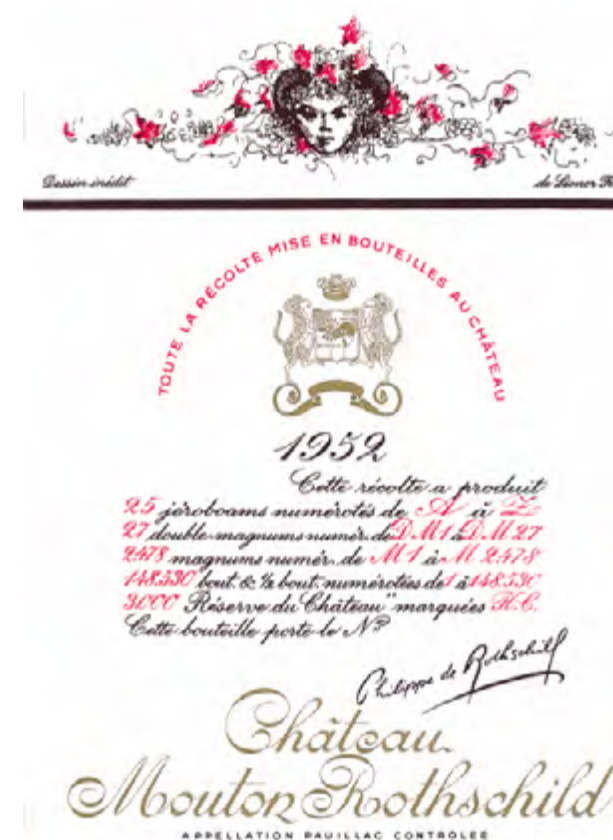 Dessin inédit
de Léonor
TOUTE LA RÉCOLTE MISE EN BOUTEILLES AU CHÂTEAU
1952
Cette récolte a produit
25 jéroboams numérotés de A à Z
27 double-magnums numér. de DM1 à DM27
2478 magnums numér. de M1 à M2478
148.530 bout. & ½ bout. numérotées de 1 à 148.530
3000 "Réserve du Château" marquées R.C.
Cette bouteille porte le Nº
Philippe de Rothschild
Château
Mouton Rothschild
APPELLATION PAUILLAC CONTRÔLÉE